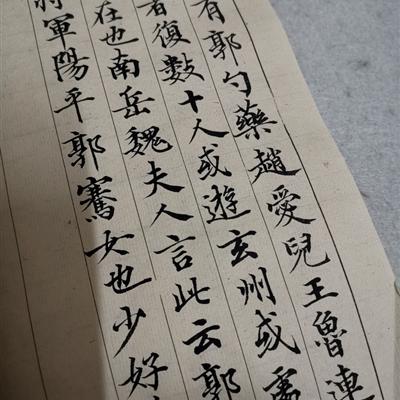 有郭勺藥趙愛兒王魯連
者復數十人或遊玄州或處
在也南岳魏夫人言此云郭
將軍陽平郭騫女也少好